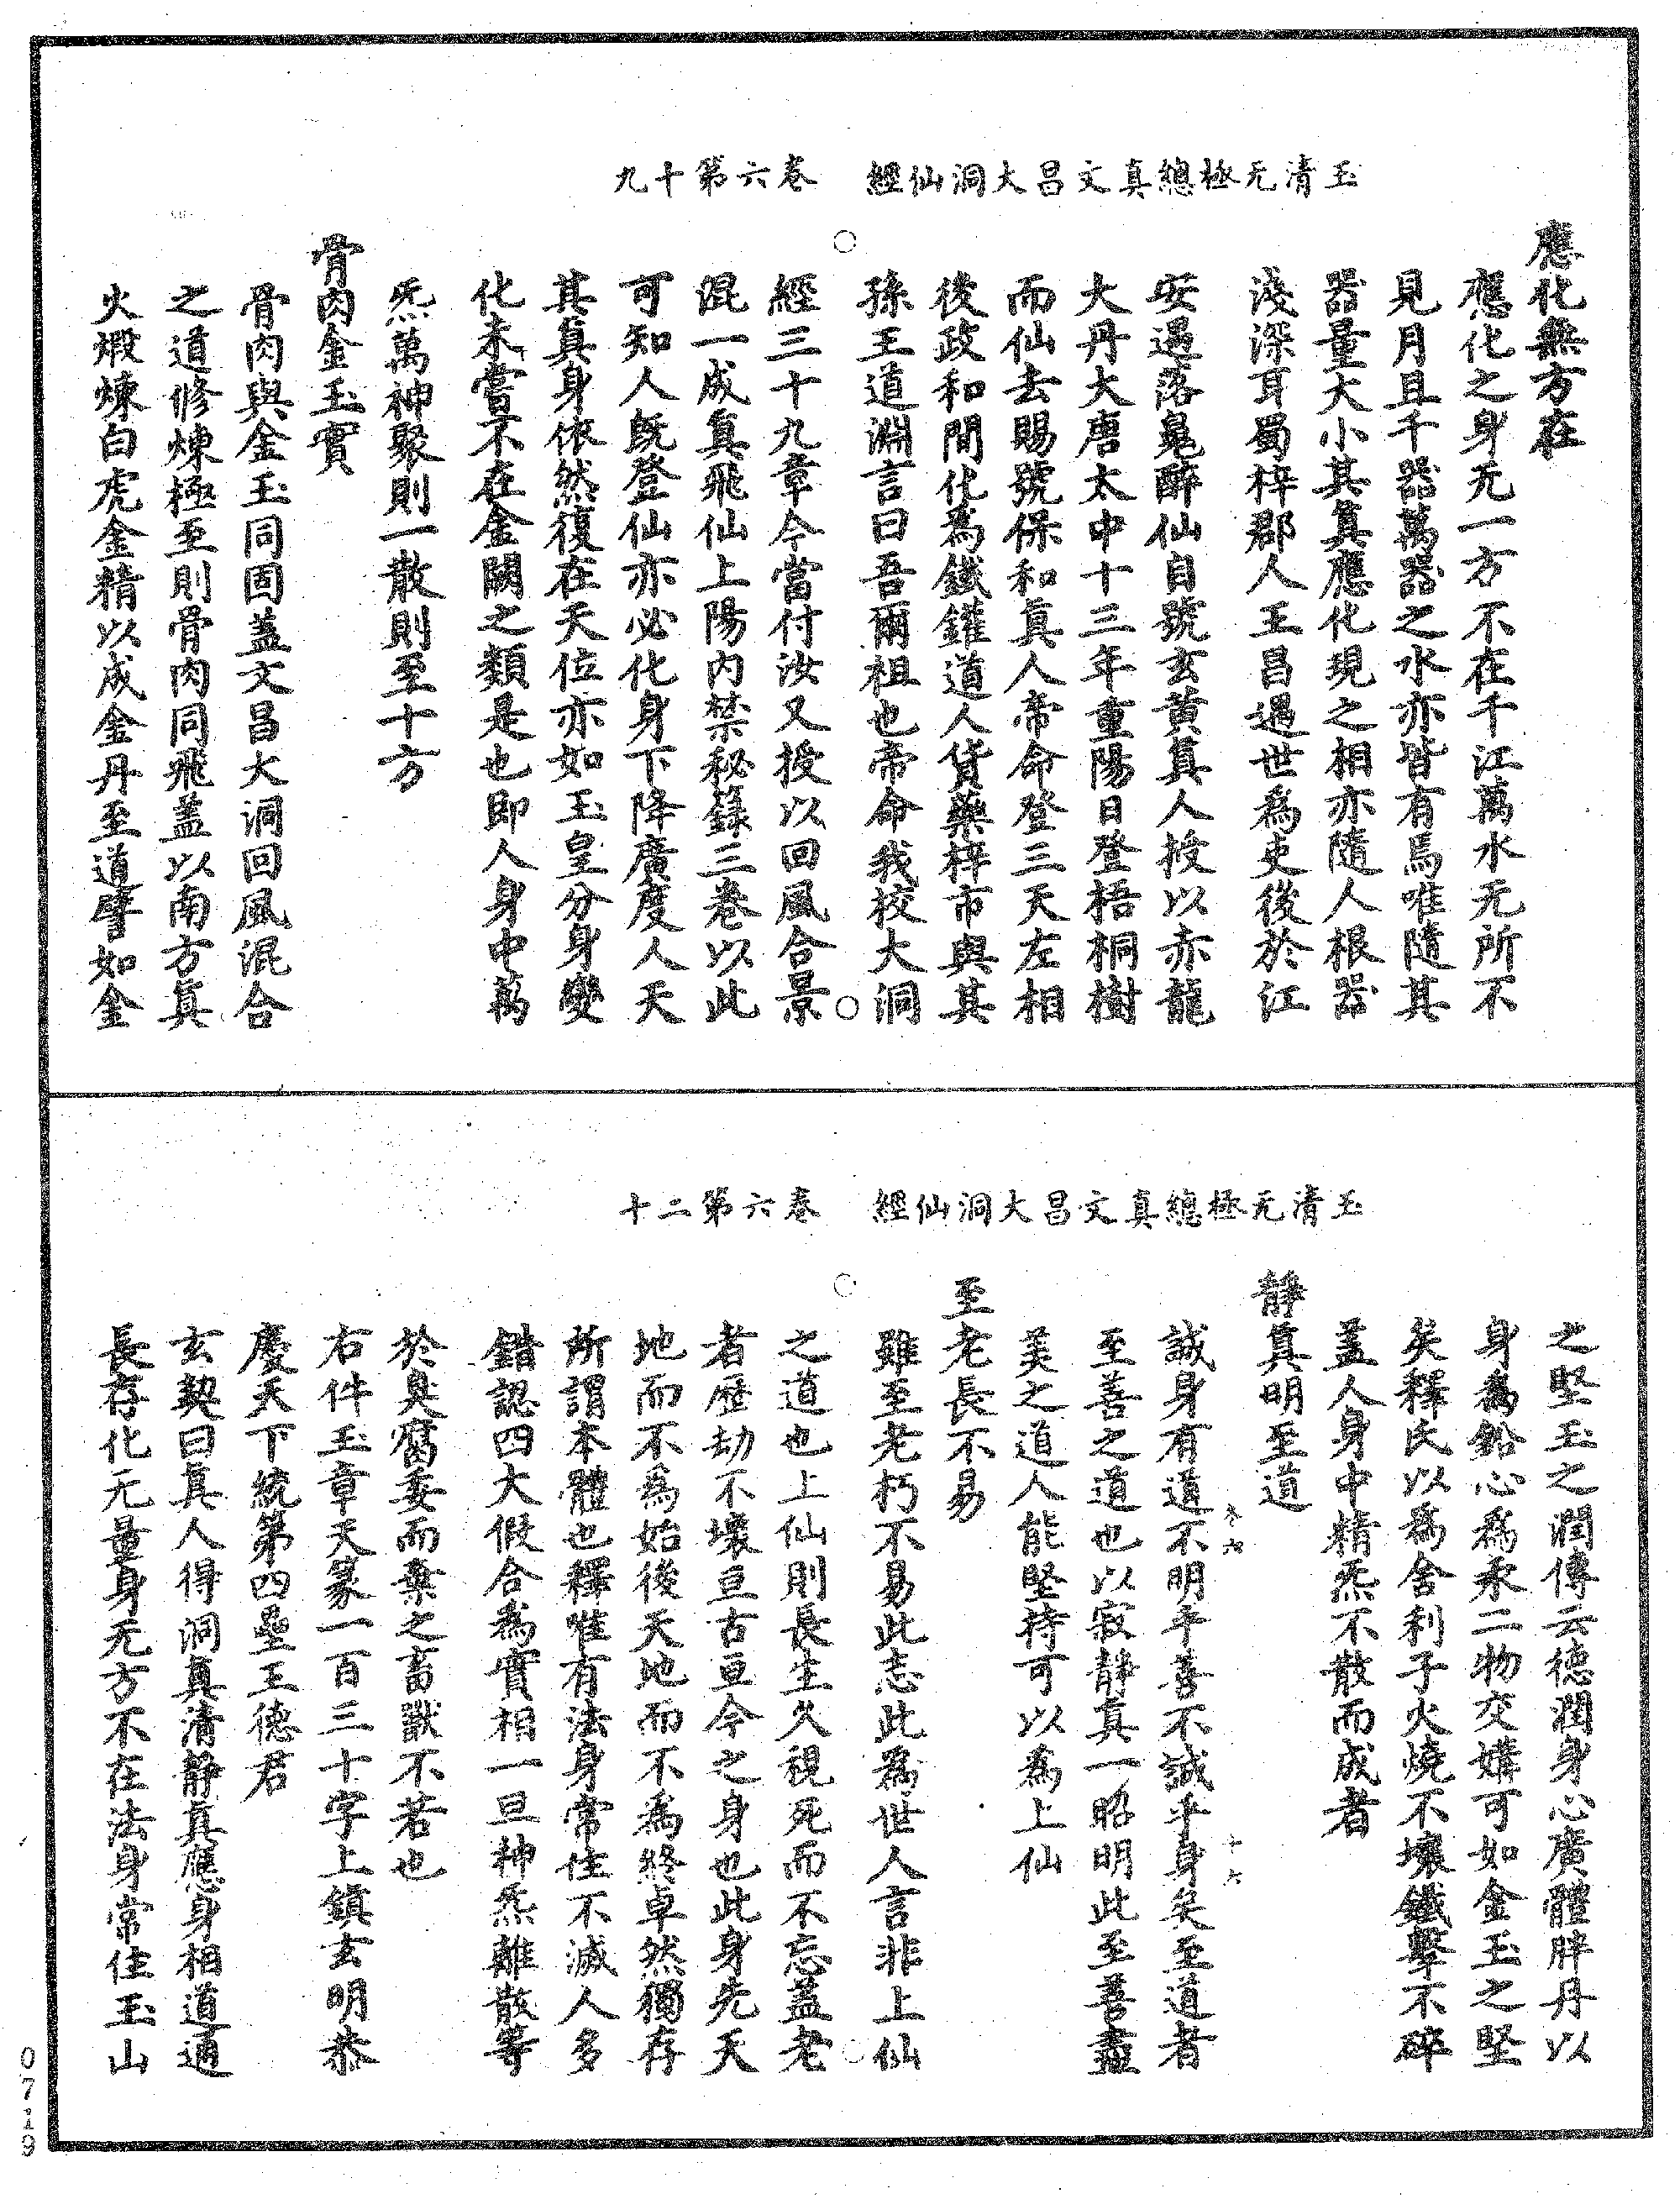 玉清无極總真文昌大洞仙經　卷六第十九
應化無方在
應化之身无一方不在千江萬水无所不
見月且千器萬器之水亦皆有焉唯隨其
器量大小其真應化現之相亦隨人根器
淺深耳蜀梓郡人王昌遇世為吏後於江
安遇落鬼醉仙自號玄黃真人授以赤龍
大丹大唐太中十三年重陽日登梧桐樹
而仙去賜號保和真人帝命登三天左相
後政和間化為鐵鑵道人貨藥梓市與其
孫王道淵言曰吾爾祖也帝命我校大洞
經三十九章今當付汝又授以回風合景
混一成真飛仙上陽內禁秘籙三卷以此
可知人既登仙亦必化身下降廣度人天
其真身依然復在天位亦如玉皇分身變
化未嘗不在金闕之類是也即人身中萬
炁萬神聚則一散則至十方
骨肉金玉實
骨肉與金玉同固蓋文昌大洞回風混合
之道修煉極至則骨肉同飛蓋以南方真
火煅煉白虎金精以成金丹至道譬如金
玉清无極總真文昌大洞仙經　卷六第二十
之堅玉之潤傳云德潤身心廣體胖丹以
身為鉛心為汞二物交媾可如金玉之堅
矣釋氏以為舍利子火燒不壞鐵擊不碎
蓋人身中精炁不散而成者
靜真明至道
誠身有道不明乎善不誠乎身矣至道者
至善之道也以寂靜真一昭明此至善盡
美之道人能堅持可以為上仙
至老長不易
雖至老朽不易此志此為世人言非上仙
之道也上仙則長生久視死而不忘蓋老
者歷劫不壞亘古亘今之身也此身先天
地而不為始後天地而不為終卓然獨存
所謂本體也釋唯有法身常住不滅人多
錯認四大假合為實相一旦神炁離散等
於臭腐委而棄之畜獸不若也
右件玉章天篆一百三十字上鎮玄明恭
慶天下統第四壘王德君
玄契曰真人得洞真清靜真應身相道通
長存化无量身无方不在法身常住玉山
0719